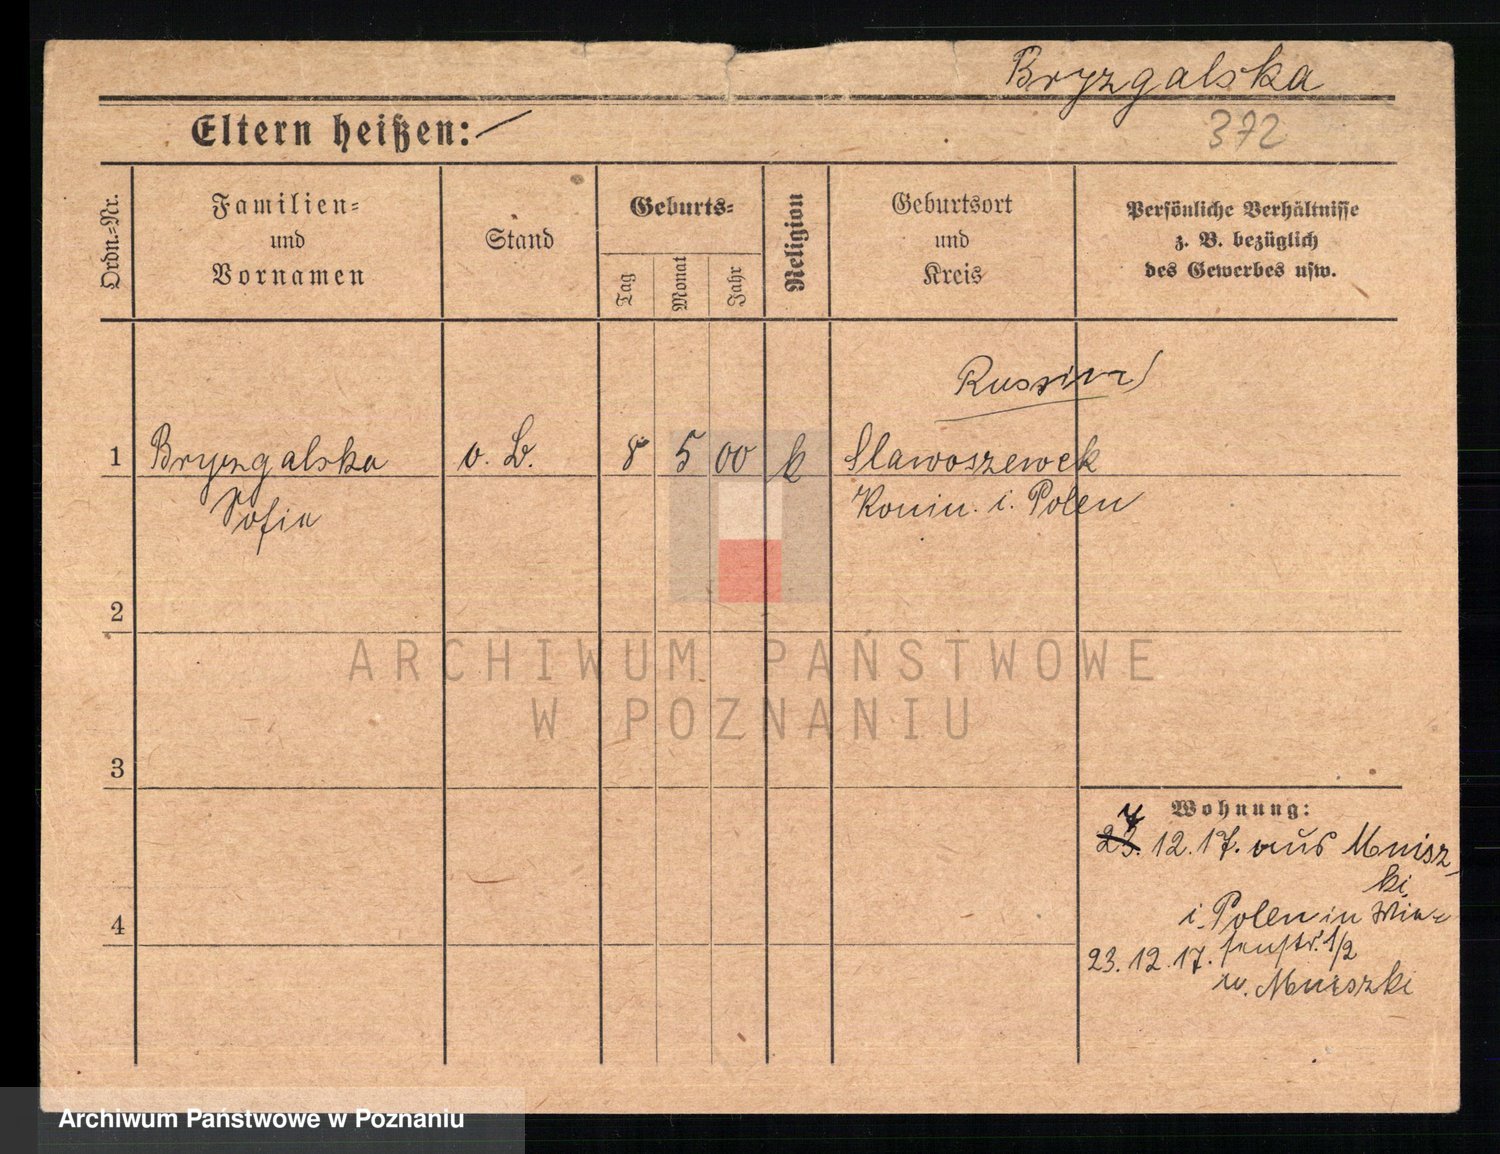 Bryzgalska
Eltern heißen: —
372
Ordn.-Nr.
Familien-
und
Vornamen
Stand
Geburts-
Tag
Monat
Jahr
Religion
Geburtsort
und
Kreis
Persönliche Verhältnisse
z. B. bezüglich
des Gewerbes usw.
1 Bryzgalska o. B. 8 5 00 k Slawoszewek
Sofia Konin. i. Polen
2
3
4
Wohnung:
12. 17. aus Mnisz-
ki
i. Polen in Wie-
senstr. 1/2
23. 12. 17.
n. Mniszki
ARCHIWUM PAŃSTWOWE
W POZNANIU
Archiwum Państwowe w Poznaniu